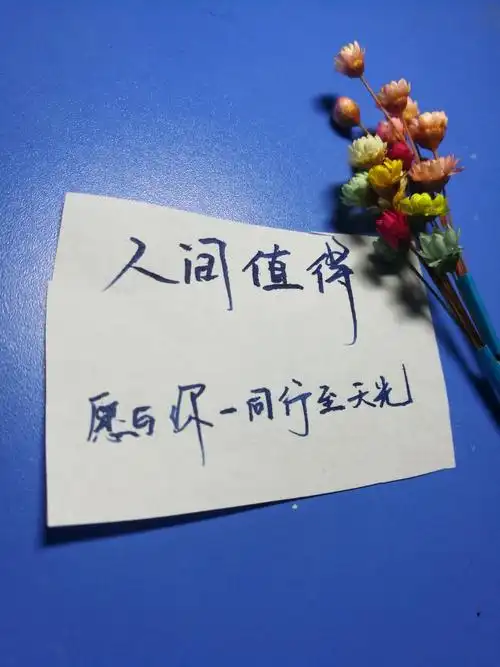 人间值得
愿与你一同行至天光